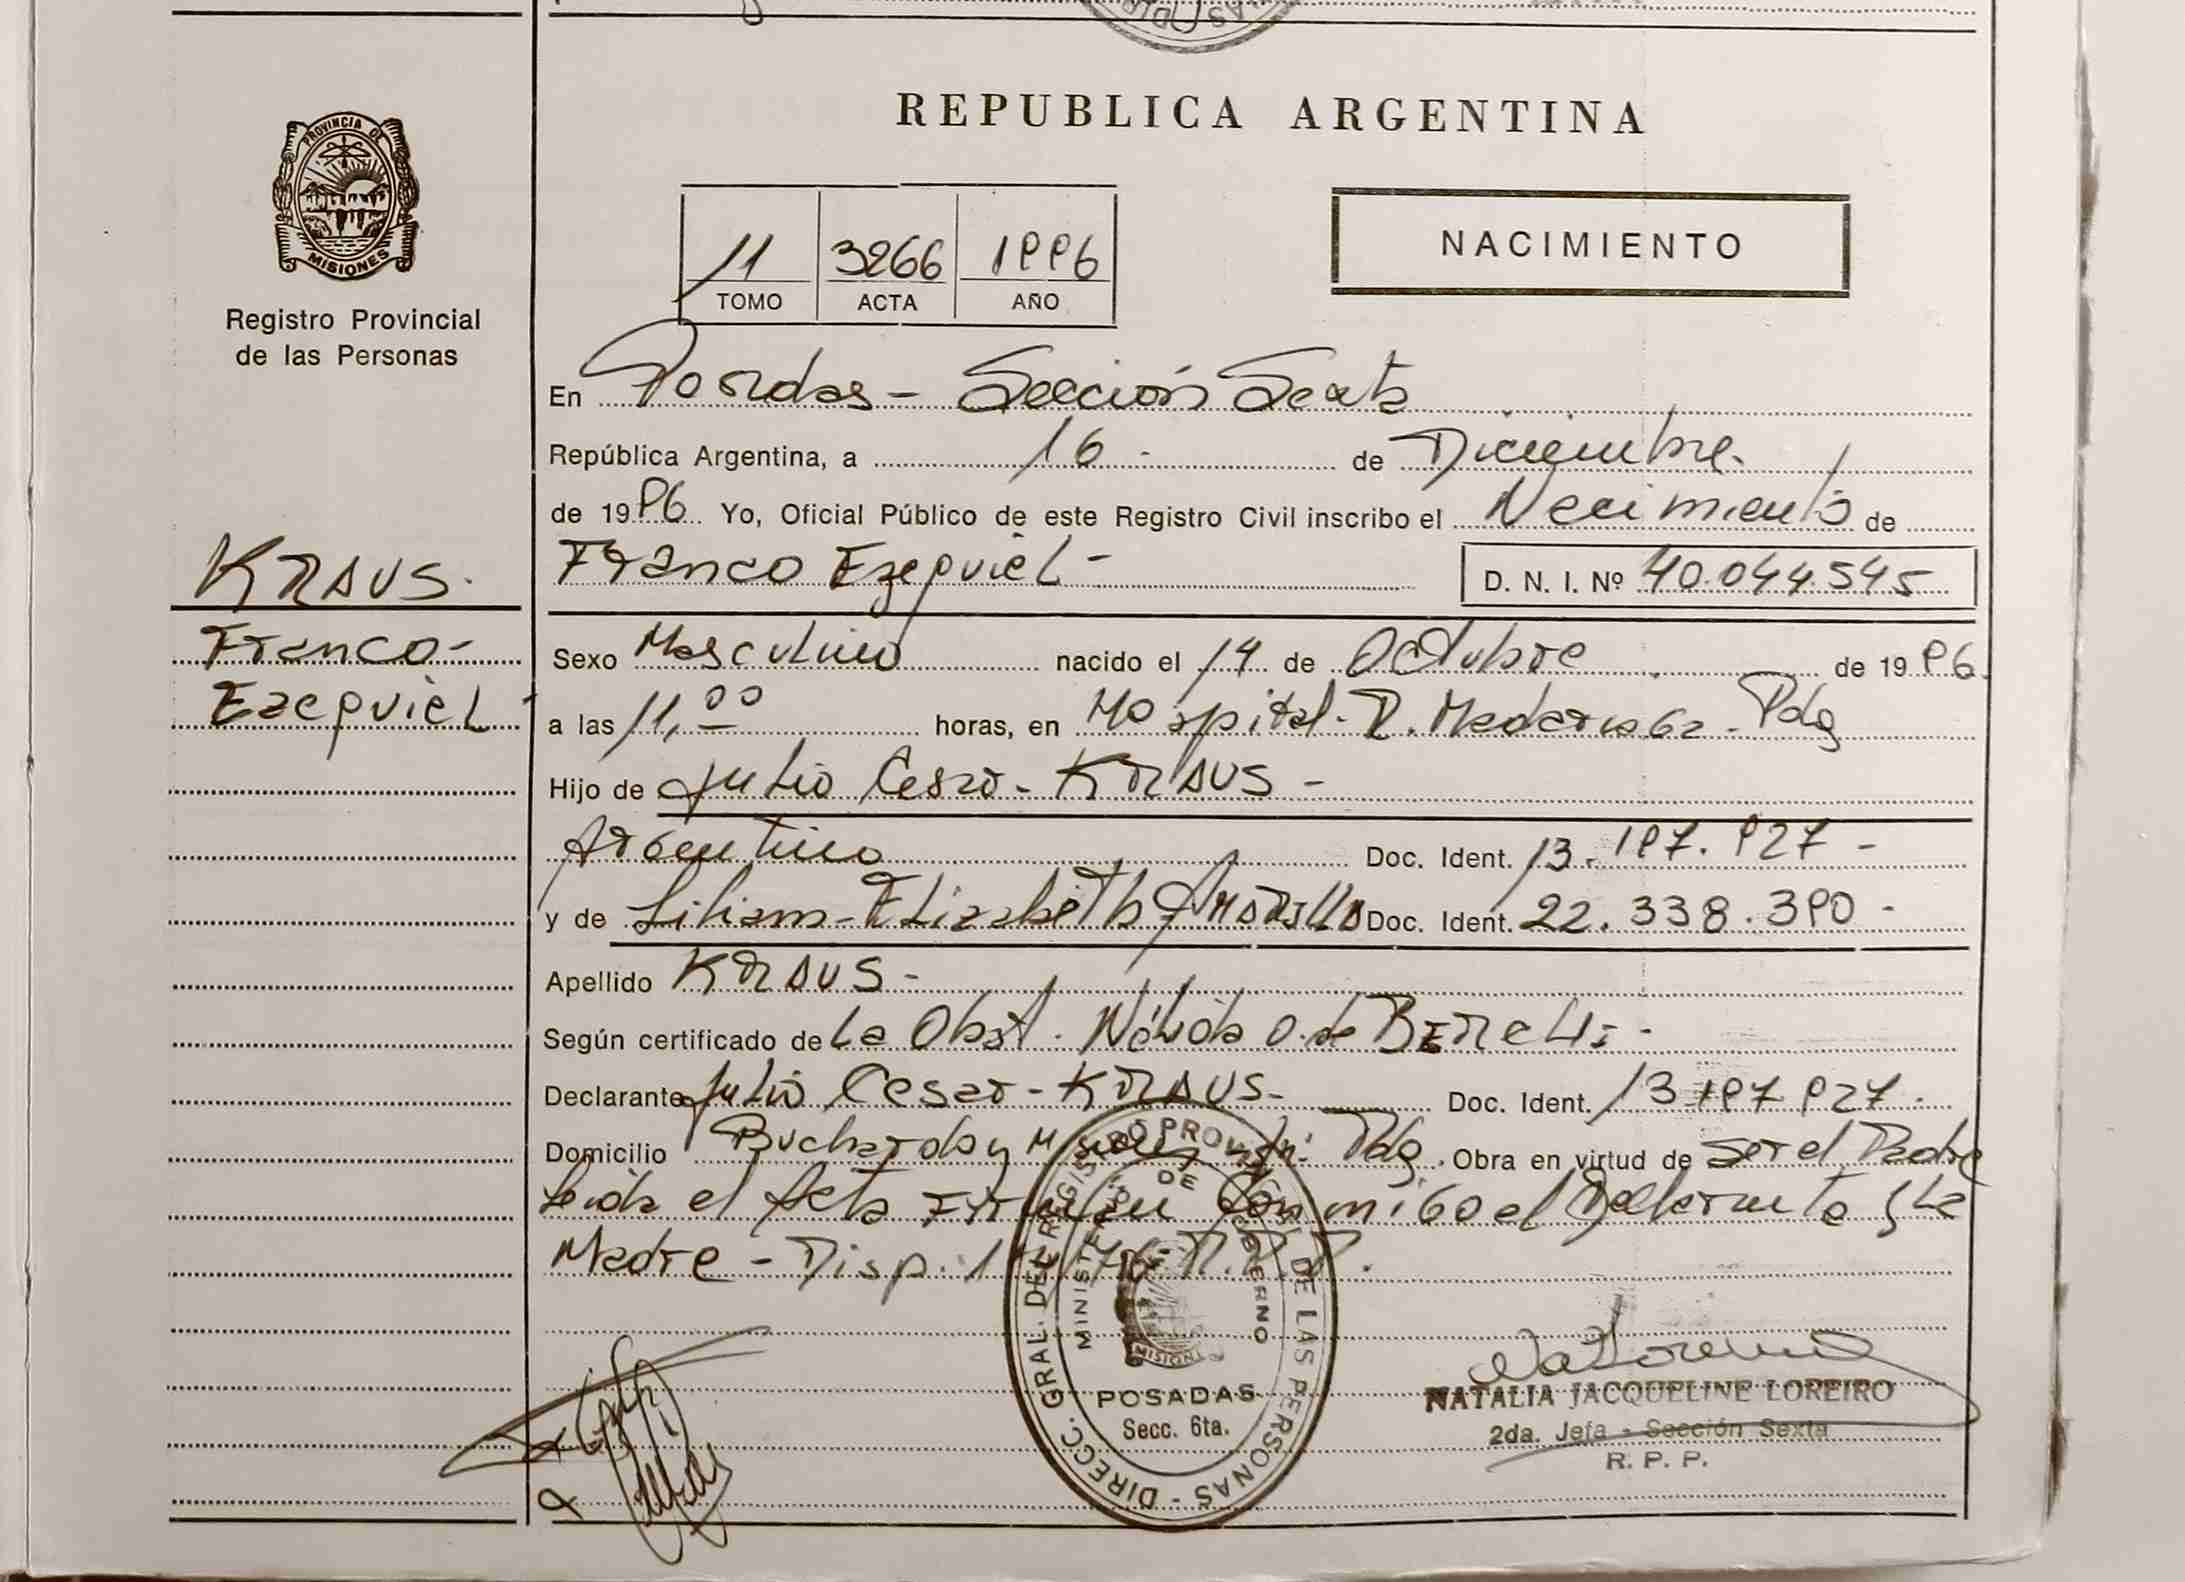 REPUBLICA ARGENTINA
PROVINCIA DE
MISIONES
Registro Provincial
de las Personas
11 3266 1996
TOMO ACTA AÑO
NACIMIENTO
En Posadas - Sección Sexta
República Argentina, a 16 - de Diciembre.
de 1996 Yo, Oficial Público de este Registro Civil inscribo el Nacimiento de
KRAUS.
Franco Ezequiel - D. N. I. Nº 40.044.545
Franco -
Ezequiel
Sexo Masculino nacido el 14 de Octubre de 1996.
a las 11,00 horas, en Hospital - R. Madariaga - Pdas
Hijo de Julio Cesar - KRAUS -
Argentino Doc. Ident. 13.197.927 -
y de Liliam - Elizabeth Doc. Ident. 22.338.390 -
Apellido KRAUS -
Según certificado de La Obst. Nélida O. de
Declarante Julio Cesar - KRAUS - Doc. Ident. 13 197 927 -
Domicilio Buchardo y Pdas. Obra en virtud de ser el Padre
Leida el Acta Firman Conmigo el Declarante y La
Madre - Disp.
DIRECC. GRAL. DEL REGISTRO PROVINCIAL DE LAS PERSONAS -
MINISTERIO DE GOBIERNO
MISIONES
POSADAS
Secc. 6ta.
NATALIA JACQUELINE LOREIRO
2da. Jefa - Sección Sexta
R. P. P.